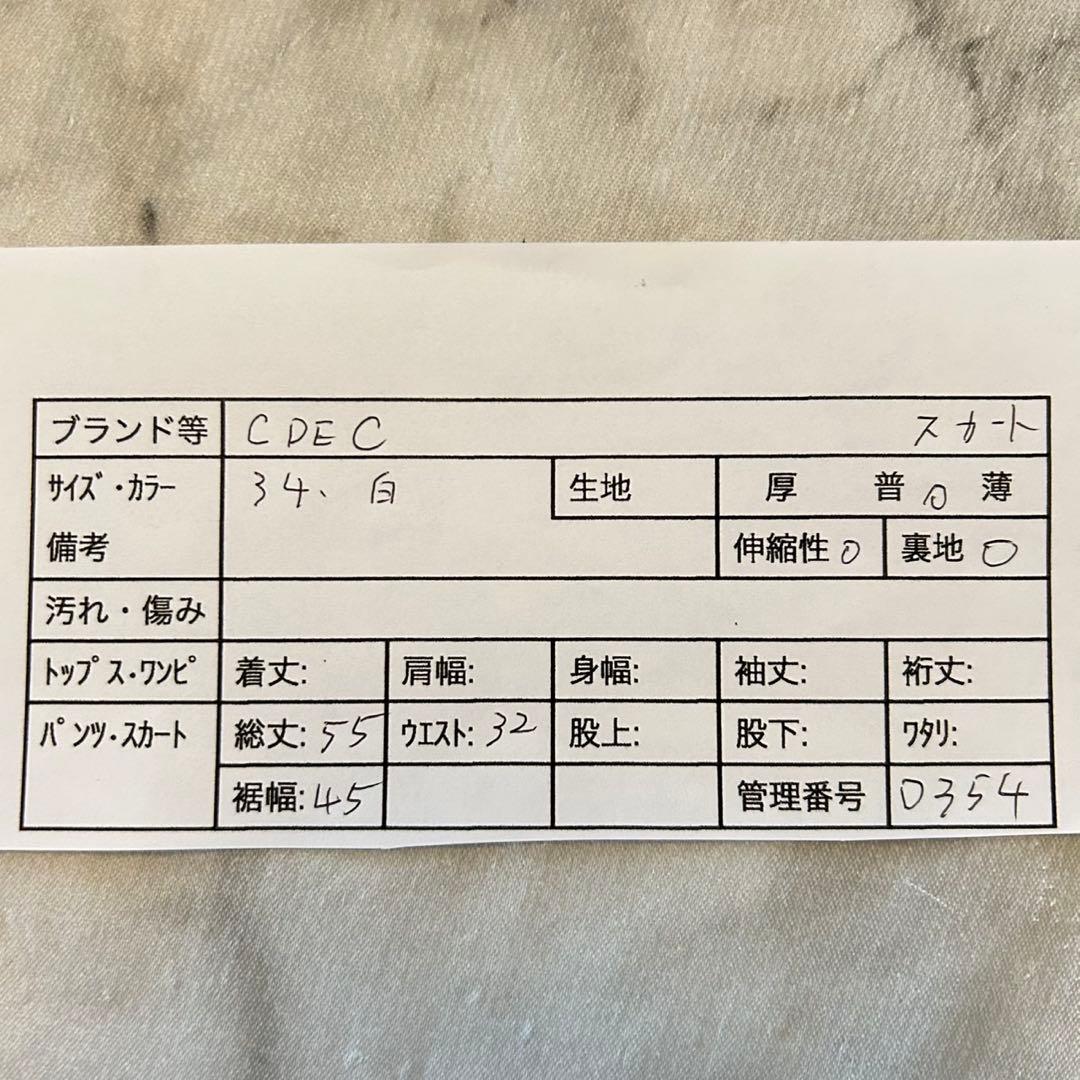 ブランド等 CDEC スカート
サイズ・カラー 34、白 生地 厚 普 〇 薄
備考 伸縮性 〇 裏地 〇
汚れ・傷み
トップス・ワンピ 着丈: 肩幅: 身幅: 袖丈: 裄丈:
パンツ・スカート 総丈:55 ウエスト:32 股上: 股下: ワタリ:
裾幅:45 管理番号 0354